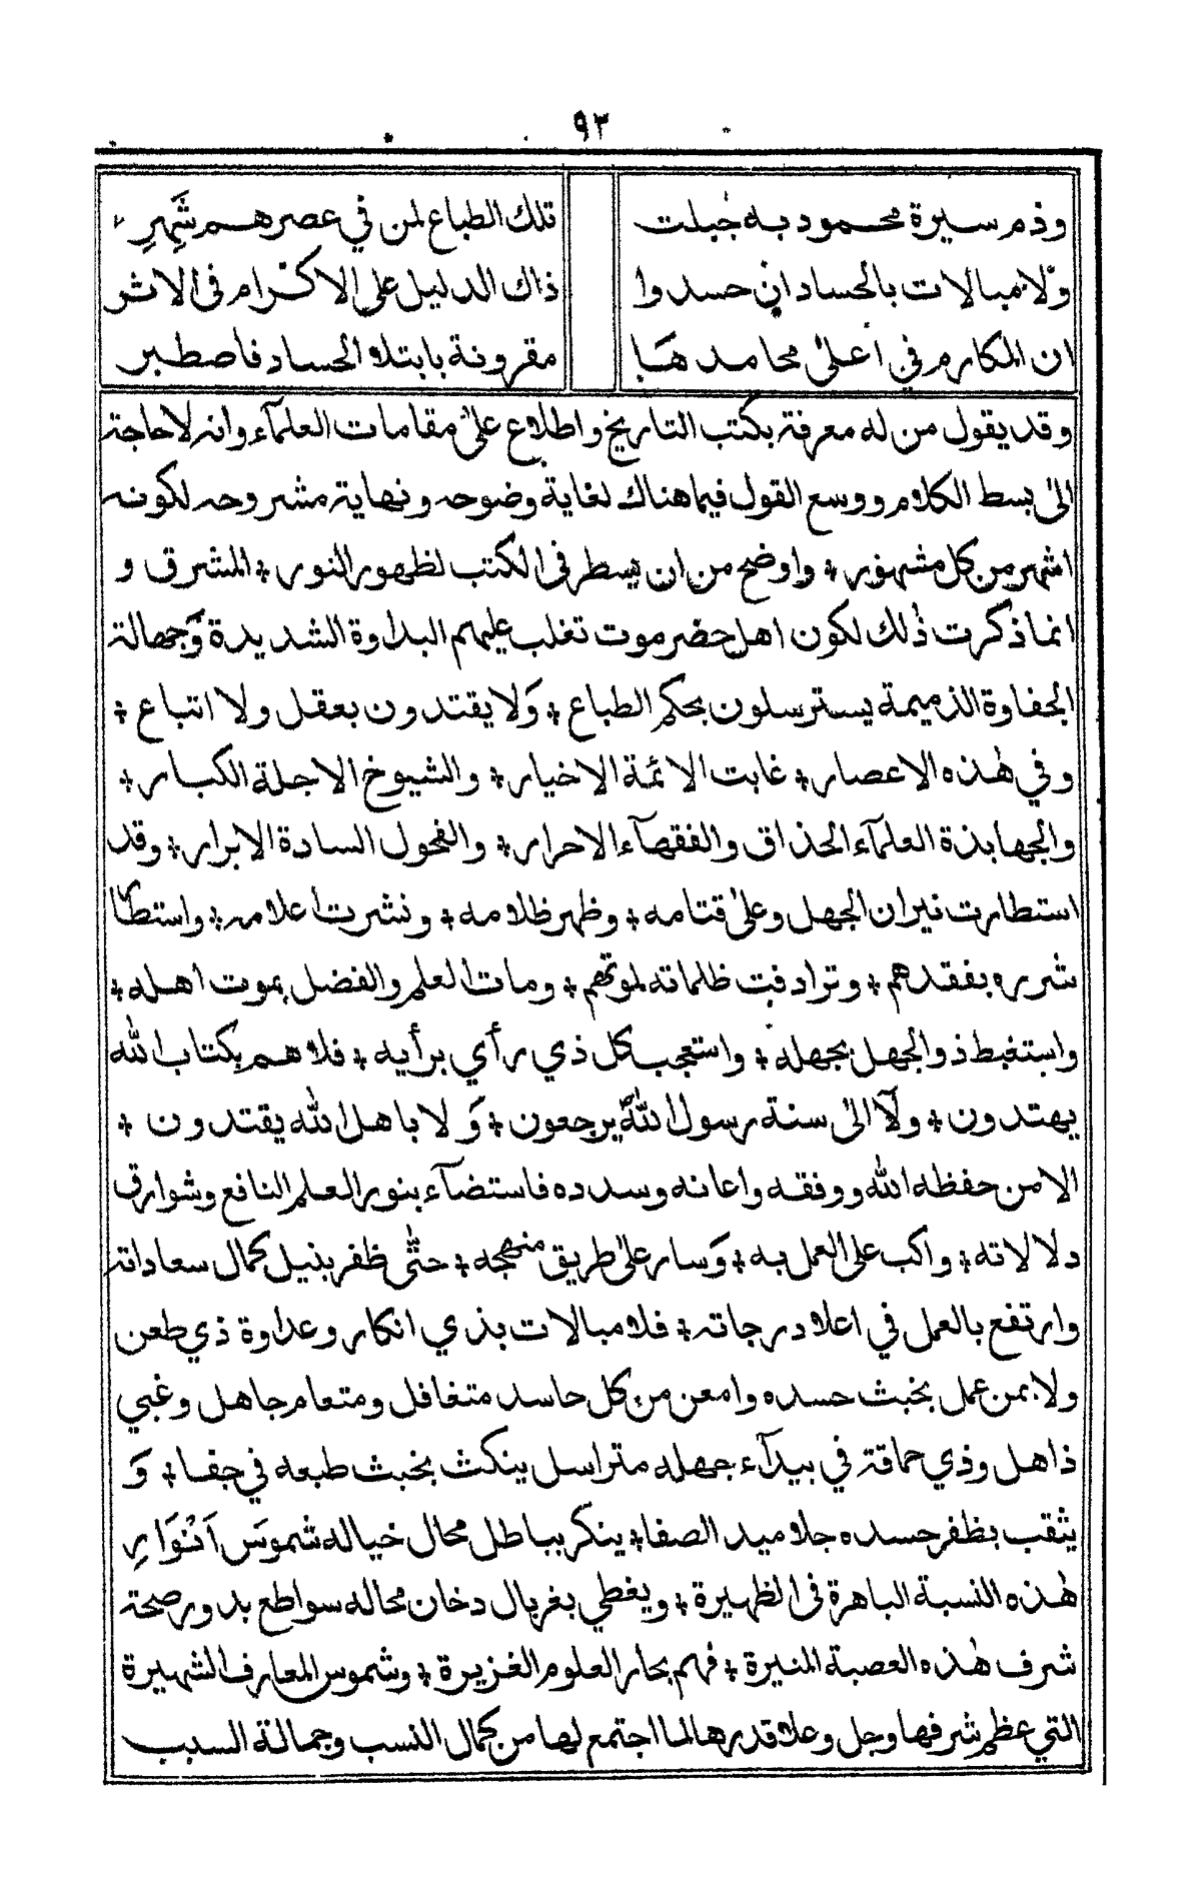 ٩٣
وذم سيرة محمود به جُبلت تلك الطباع لمن في عصرهم شَهِرِ
ولا مبالات بالحساد ان حسدوا ذاك الدليل على الاكرام فى الاثر
ان المكارم في اعلىٰ محامدهَا مقرونة بابتلاء الحساد فاصطبر
وقد يقول من له معرفة بكتب التاريخ واطلاع علىٰ مقامات العلمآء وانه لا حاجة
الىٰ بسط الكلام ووسع القول فيما هناك لغاية وضوحه ونهاية مشروحه لكونه
اشهر من كل مشهور ÷ واوضح من ان يسطر فى الكتب لظهور النور ÷ المشرق و
انما ذكرت ذٰلك لكون اهل حضرموت تغلب عليهم البداوة الشديدة وَجهالة
الجفاوة الذميمة يسترسلون بحكم الطباع ÷ وَلا يقتدون بعقل ولا اتباع ÷
وفي هٰذه الاعصار ÷ غابت الائمة الاخيار ÷ والشيوخ الاجلة الكبار ÷
والجهابذة العلمآء الحذاق والفقهآء الاحرار ÷ والفحول السادة الابرار ÷ وقد
استطارت نيران الجهل وعلىٰ قتامه ÷ وظهر ظلامه ÷ ونشرت اعلامه ÷ واستطار
شرره بفقدهم ÷ وترادفت ظلماته لموتهم ÷ ومات العلم والفضل بموت اهله ÷
واستغبط ذو الجهل بجهله ÷ واستعجب كل ذي رأي برأيه ÷ فلا هم بكتاب الله
يهتدون ÷ ولآ الىٰ سنة رسول الله يرجعون ÷ وَلا باهل الله يقتدون ÷
الا من حفظه الله ووفقه واعانه وسدده فاستضآء بنور العلم النافع وشوارق
دلالاته ÷ واكب على العمل به ÷ وَسار على طريق منهجه ÷ حتّٰى ظفر بنيل كمال سعاداته
وارتفع بالعمل في اعلا درجاته ÷ فلا مبالات بذي انكار وعداوة ذي طعن
ولا بمن عمل بخبث حسده وامعن من كل حاسد متغافل ومتعام جاهل وغبي
ذاهل وذي حماقة في بيدآء جهله متراسل ينكث بخبث طبعه في جفا ÷ وَ
يثقب بظفر حسده جلاميد الصفا ÷ ينكر بباطل محال خياله شموسَ اَنْوَارِ
هٰذه النسبة الباهرة فى الظهيرة ÷ ويغطي بغربال دخان محاله سواطع بدور صحة
شرف هٰذه العصبة المنيرة ÷ فهم بحار العلوم الغزيرة ÷ وشموس المعارف الشهيرة
التي عظم شرفها وجل وعلا قدرها لما اجتمع لها من كمال النسب وجمالة السبب